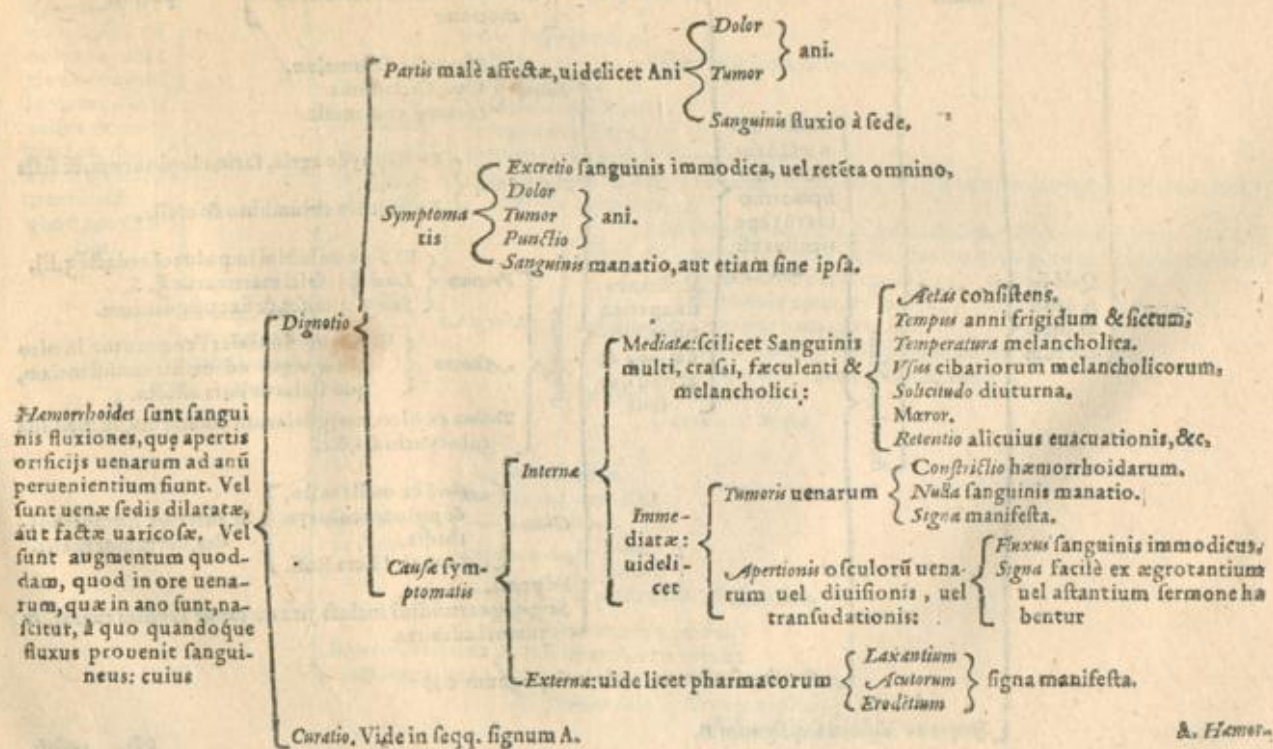 Hæmorrhoides ſunt ſangui
nis fluxiones, quę apertis
orificijs uenarum ad anū
peruenientium fiunt. Vel
ſunt uenæ ſedis dilatatæ,
aut factæ uaricoſæ. Vel
ſunt augmentum quod-
dam, quod in ore uena-
rum, quæ in ano ſunt, na-
ſcitur, à quo quandoque
fluxus prouenit ſangui-
neus: cuius
Dignotio
Partis malè affectæ, uidelicet Ani
Dolor
Tumor
ani.
Sanguinis fluxio à ſede.
Symptoma
tis
Excretio ſanguinis immodica, uel retēta omnino,
Dolor
Tumor
Punctio
ani.
Sanguinis manatio, aut etiam ſine ipſa.
Cauſæ ſym-
ptomatis
Internæ
Mediatæ: ſcilicet Sanguinis
multi, craſſi, fæculenti &
melancholici:
Aetas conſiſtens.
Tempus anni frigidum & ſiccum;
Temperatura melancholica.
Vſus cibariorum melancholicorum,
Solicitudo diuturna.
Mœror.
Retentio alicuius euacuationis, &c,
Imme-
diatæ:
uideli-
cet
Tumoris uenarum
Conſtrictio hæmorrhoidarum.
Nulla ſanguinis manatio.
Signa manifeſta.
Apertionis oſculorū uena-
rum uel diuiſionis, uel
tranſudationis:
Fluxus ſanguinis immodicus,
Signa facilè ex ægrotantium
uel aſtantium ſermone ha
bentur
Externæ: uide licet pharmacorum
Laxantium
Acutorum
Erodētium
ſigna manifeſta.
Curatio. Vide in ſeqq. ſignum A.
&. Hæmor-